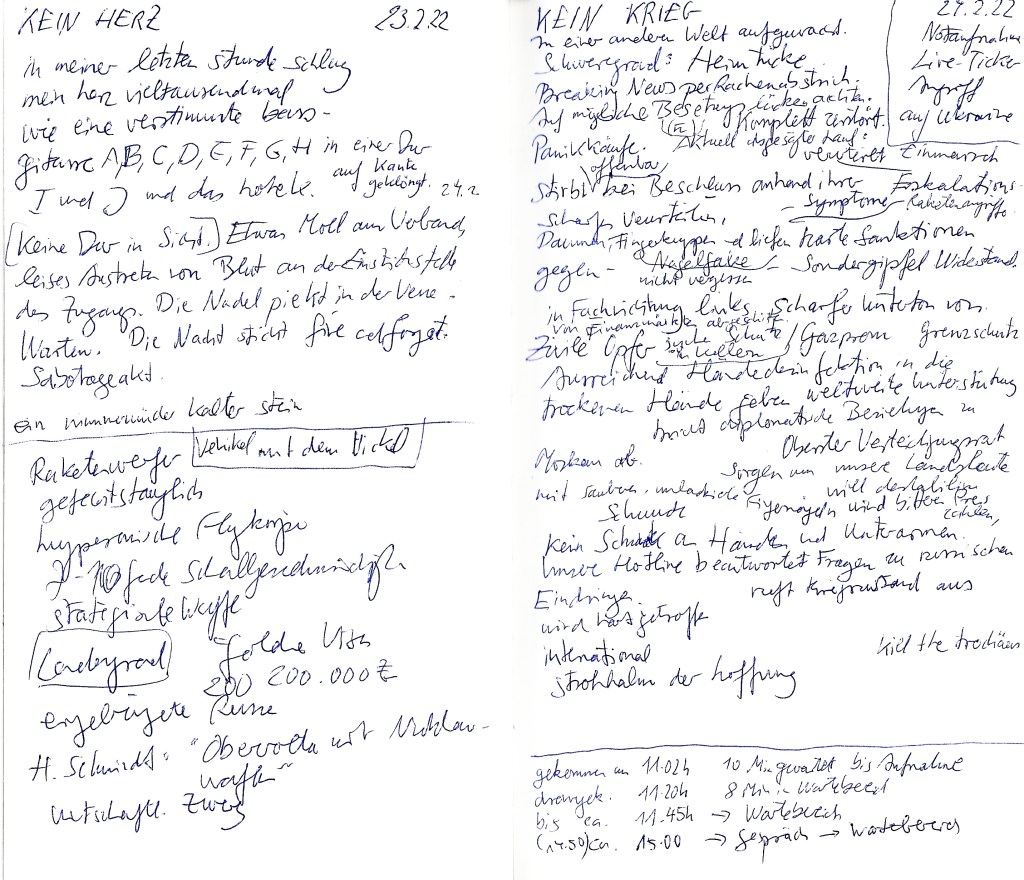 KEIN HERZ 23.2.22
in meiner letzten stunde schlug
mein herz vieltausendmal
wie eine verstimmte bass-
gitarre A,B,C,D,E,F,G,H in einer Dur
I und J und das hohe k. auf Kante
geklöngt. 24.2.
[Keine Dur in Sicht.] Etwas Moll am Verband,
leises Austreten von Blut an der Einstichstelle
des Zugangs. Die Nadel piekst in der Vene.
Warten. Die Nacht sticht
Sabotageakt.
ein nimmermüder kalter stein
Raketenwerfer Vehikel mit dem Pickel
gefechtstauglich
2-10fache Schallgeschwindigk.
Waffe
Solche
200 200.000
Russe
H. Schmidt: "Obervolta mit
waffen"
wirtschaftl. Zwerg
KEIN KRIEG 24.2.22
In einer anderen Welt aufgewacht.
Schweregrad: Heimtücke
Breaking News per Rachenabstrich.
Auf mögliche Besetzungslücken achten.
Komplett zerstört.
Notaufnahme
Live-Ticker
Angriff
auf Ukraine
Panikkäufe. Aktuell
verwirrt Einmarsch
offenbar
stirbt bei Beschuss anhand ihrer Eskalations-
Symptome - Raketenangriffe
scharfen Verurteilen,
Daumen, Fingerkuppen d liefen harte Sanktionen
gegen - Nagelfalze - Sondergipfel Widerstand.
nicht vergessen
in Fachrichtung links. Scharfer Unterton von
von Finanzmärkten
Zivile Opfer suche Schutz
in Kellern / Gazprom Grenzschutz
Ausreichend Händedesinfektion in die
trockenen Hände geben weltweite Unterstützung
bricht diplomatische Beziehungen zu
Moskau ab. Oberster Verteidigungsrat
Sorgen um unsere Landsleute
mit sauberen, unlackierten Fingernägeln wird bitteren Preis
zahlen,
kein Schmuck an Händen und Unterarmen.
Unsere Hotline beantwortet Fragen zu russischen
Eindringen. ruft Kriegszustand aus
wird hart getroffen
international kill the trochäus
strohhalm der hoffnung
gekommen um 11.02h 10 Min gewartet bis Aufnahme
11.20h 8 Min in Wartebereich
bis ca. 11.45h → Wartebereich
(14.50) ca. 15.00 → Gespräch → Wartebereich